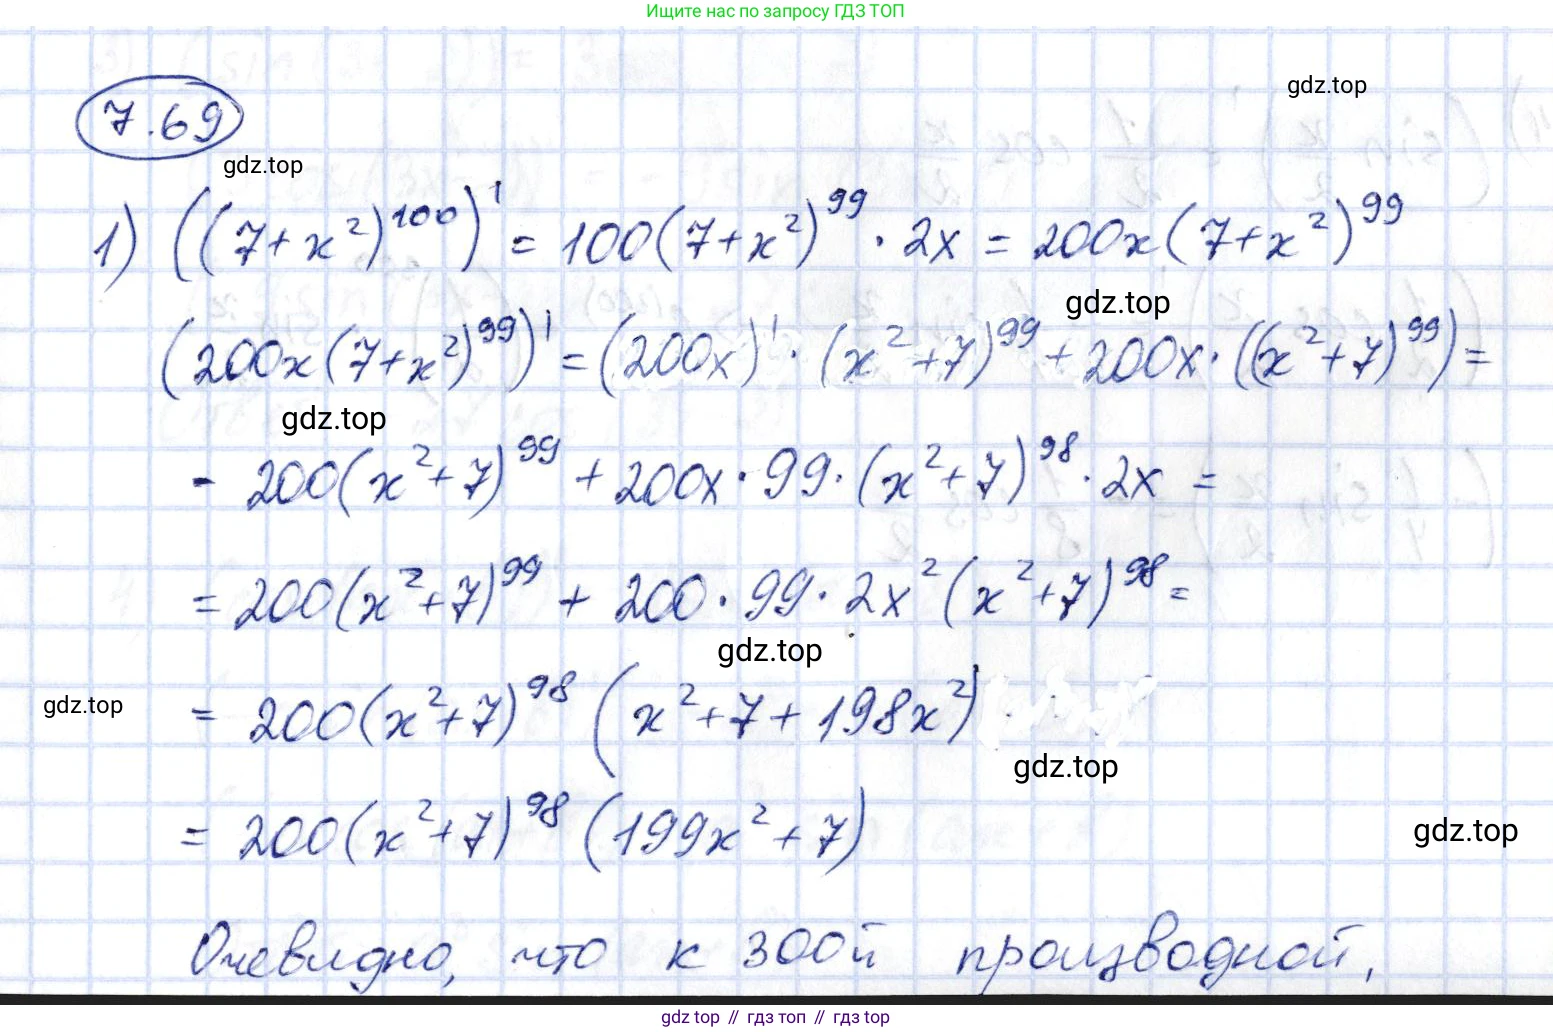 Ищите нас по запросу ГДЗ ТОП
gdz.top
7.69
gdz.top
1) ((7+x²)¹⁰⁰)' = 100(7+x²)⁹⁹ · 2x = 200x(7+x²)⁹⁹
gdz.top
(200x(7+x²)⁹⁹)' = (200x)' · (x²+7)⁹⁹ + 200x · ((x²+7)⁹⁹) =
gdz.top
- 200(x²+7)⁹⁹ + 200x · 99 · (x²+7)⁹⁸ · 2x =
= 200(x²+7)⁹⁹ + 200 · 99 · 2x²(x²+7)⁹⁸ =
gdz.top
gdz.top
= 200(x²+7)⁹⁸ (x²+7+198x²)
gdz.top
= 200(x²+7)⁹⁸ (199x²+7)
gdz.top
Очевидно, что к 300й производной,
gdz top // гдз топ // гдз top